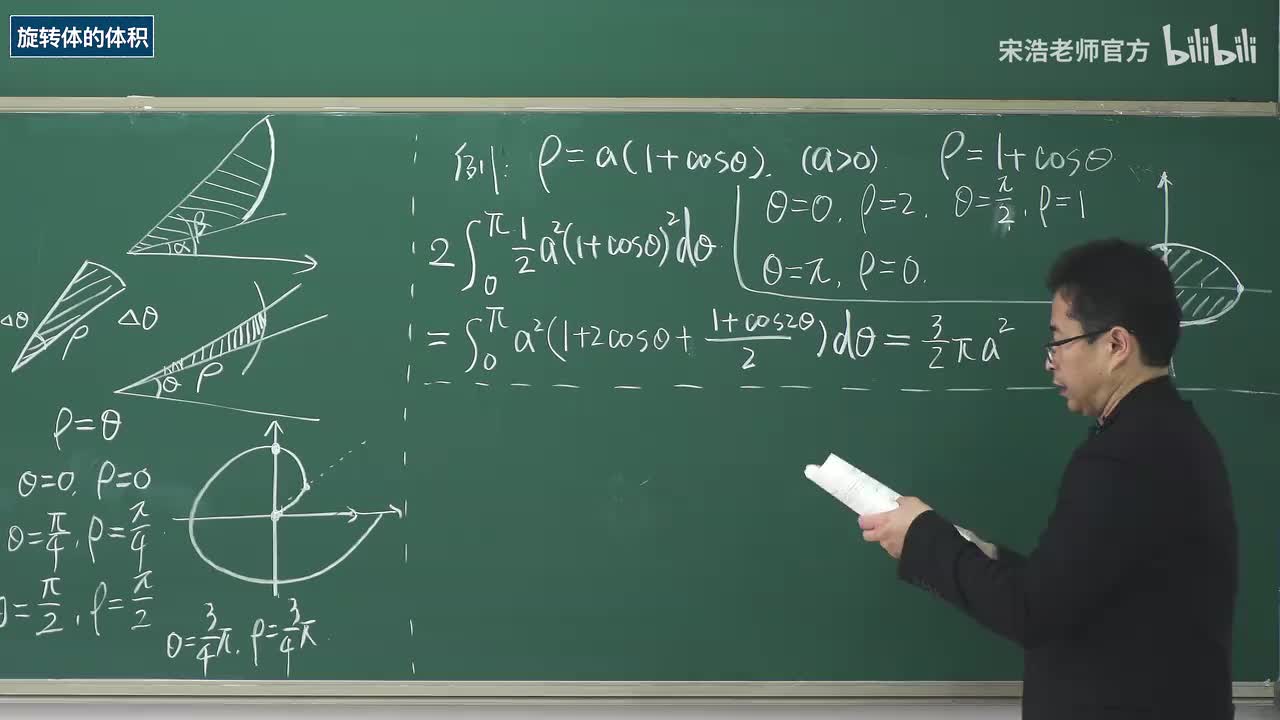 旋转体的体积
宋浩老师官方 bilibili
α β
Δθ ρ Δθ
θ ρ
ρ=θ
θ=0, ρ=0
θ=π/4, ρ=π/4
θ=π/2, ρ=π/2
θ=3/4π, ρ=3/4π
例: ρ=a(1+cosθ). (a>0). ρ=1+cosθ
θ=0, ρ=2, θ=π/2, ρ=1
2∫₀^π 1/2 a²(1+cosθ)²dθ
θ=π, ρ=0.
=∫₀^π a²(1+2cosθ+(1+cos2θ)/2)dθ=3/2πa²